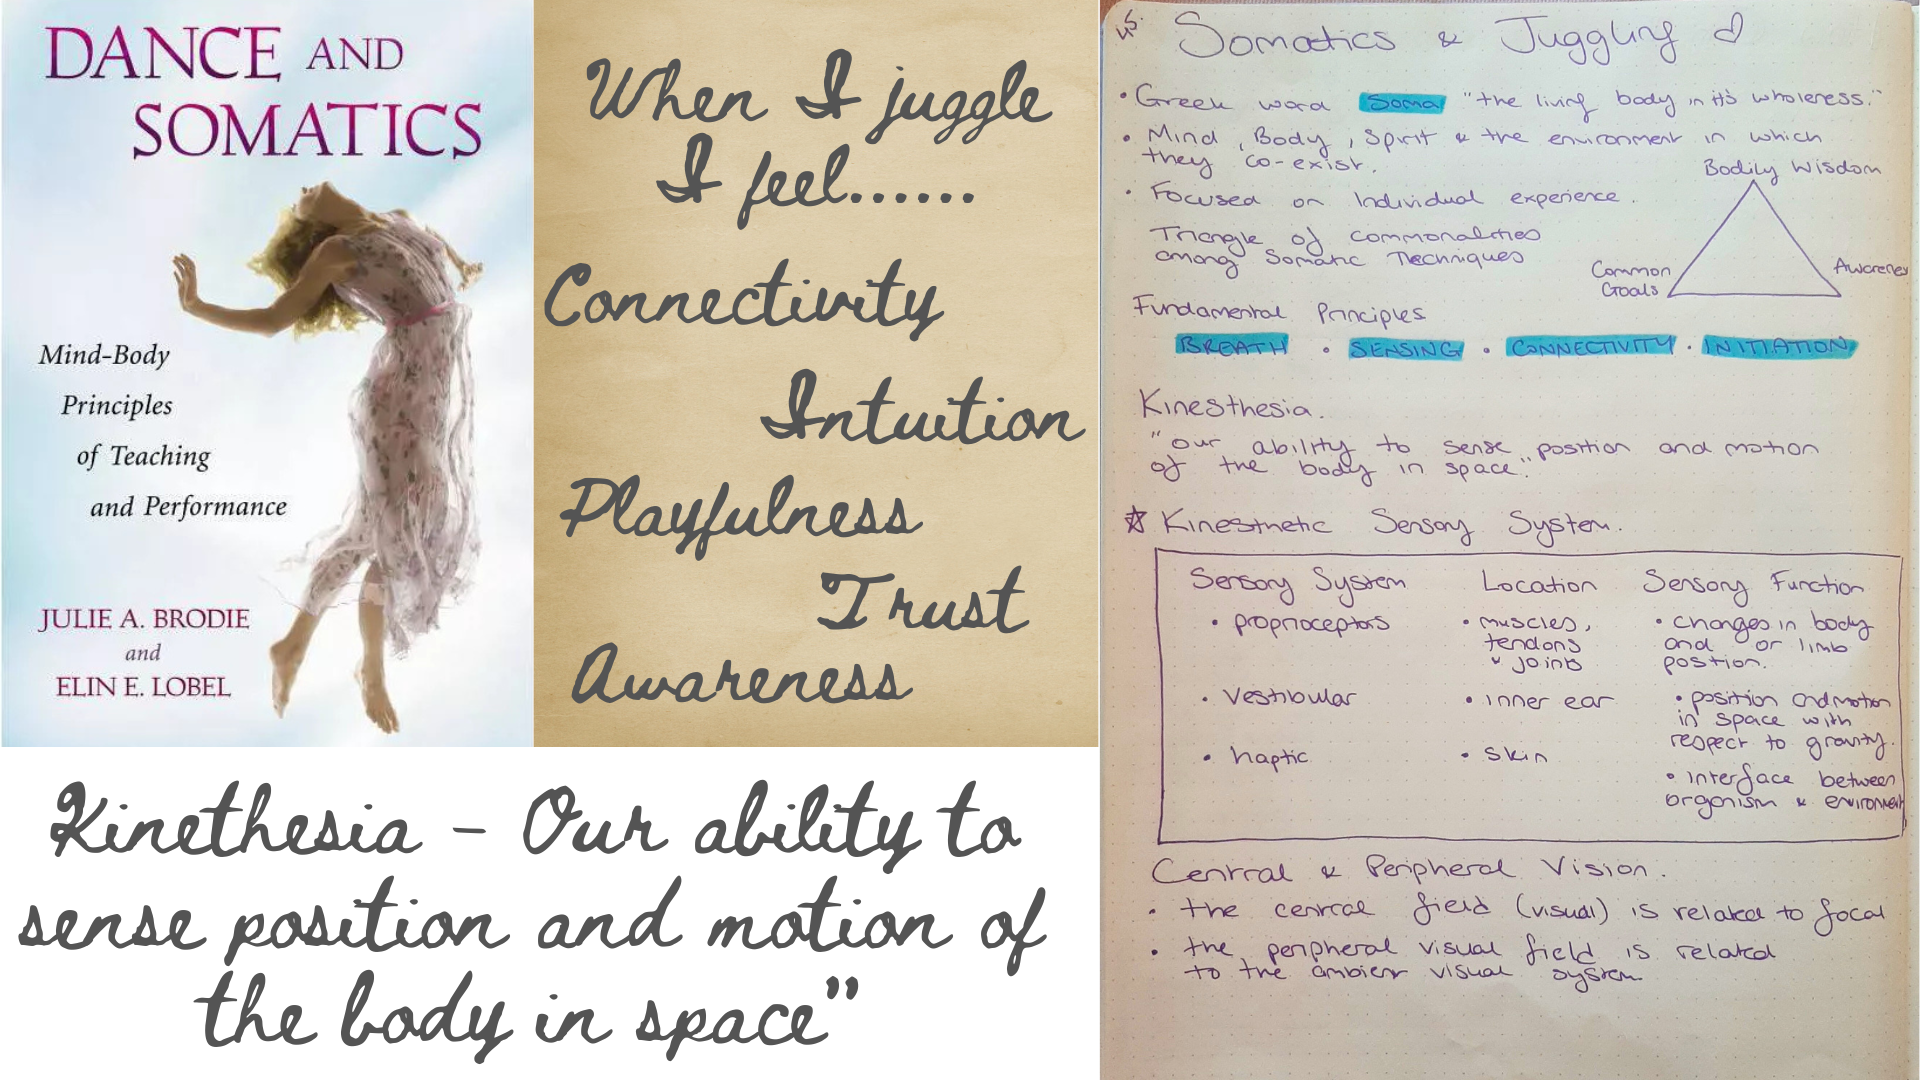 DANCE AND
SOMATICS
Mind-Body
Principles
of Teaching
and Performance
JULIE A. BRODIE
and
ELIN E. LOBEL
When I juggle
I feel......
Connectivity
Intuition
Playfulness
Trust
Awareness
Kinethesia - Our ability to
sense position and motion of
the body in space"
Somatics & Juggling
• Greek word Soma "the living body in it's wholeness."
• Mind, Body, Spirit & the environment in which
they co-exist.
• Focused on Individual experience.
Triangle of commonalities
among Somatic Techniques
Bodily Wisdom
Common
Goals
Awareness
Fundamental Principles
BREATH • SENSING • CONNECTIVITY • INITIATION
Kinesthesia.
"our ability to sense position and motion
of the body in space."
☆ Kinesthetic Sensory System.
Sensory System Location Sensory Function
• proprioceptors • muscles, • changes in body
tendons and or limb
& joints position.
• Vestibular • inner ear • position and motion
in space with
respect to gravity.
• haptic • skin
• interface between
organism & environment
Central & Peripheral Vision.
• the central field (visual) is related to focal
• the peripheral visual field is related
to the ambient visual system